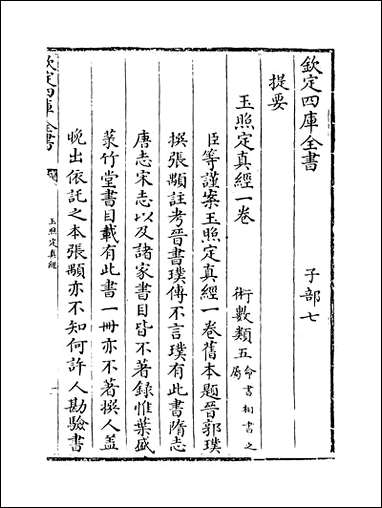 欽定四庫全書 子部七
提要
玉照定真經一卷 術數類五命書相書之屬
臣等謹案玉照定真經一卷舊本題晉郭璞
撰張顒註考晉書璞傳不言璞有此書隋志
唐志宋志以及諸家書目皆不著錄惟葉盛
菉竹堂書目載有此書一冊亦不著撰人蓋
晚出依託之本張顒亦不知何許人勘驗書
欽定四庫全書 玉照定真經